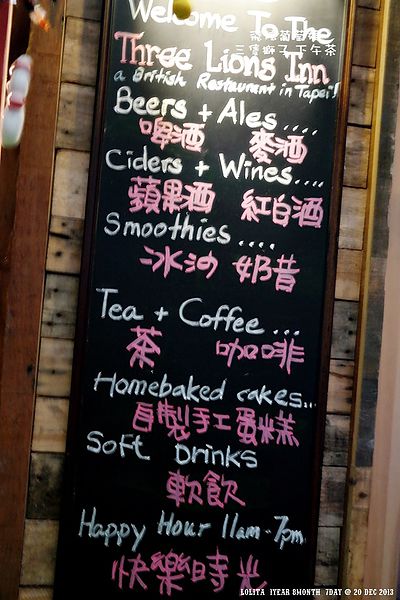 Welcome To The
Three Lions Inn
三隻獅子下午茶
a British Restaurant in Taipei!
Beers + Ales....
啤酒 麥酒
Ciders + Wines....
蘋果酒 紅白酒
Smoothies....
冰沙 奶昔
Tea + Coffee...
茶 咖啡
Homebaked cakes...
自製手工蛋糕
Soft Drinks
軟飲
Happy Hour 11am-7pm
快樂時光
LOLITA 1YEAR 8MONTH 7DAY @ 20 DEC 2013